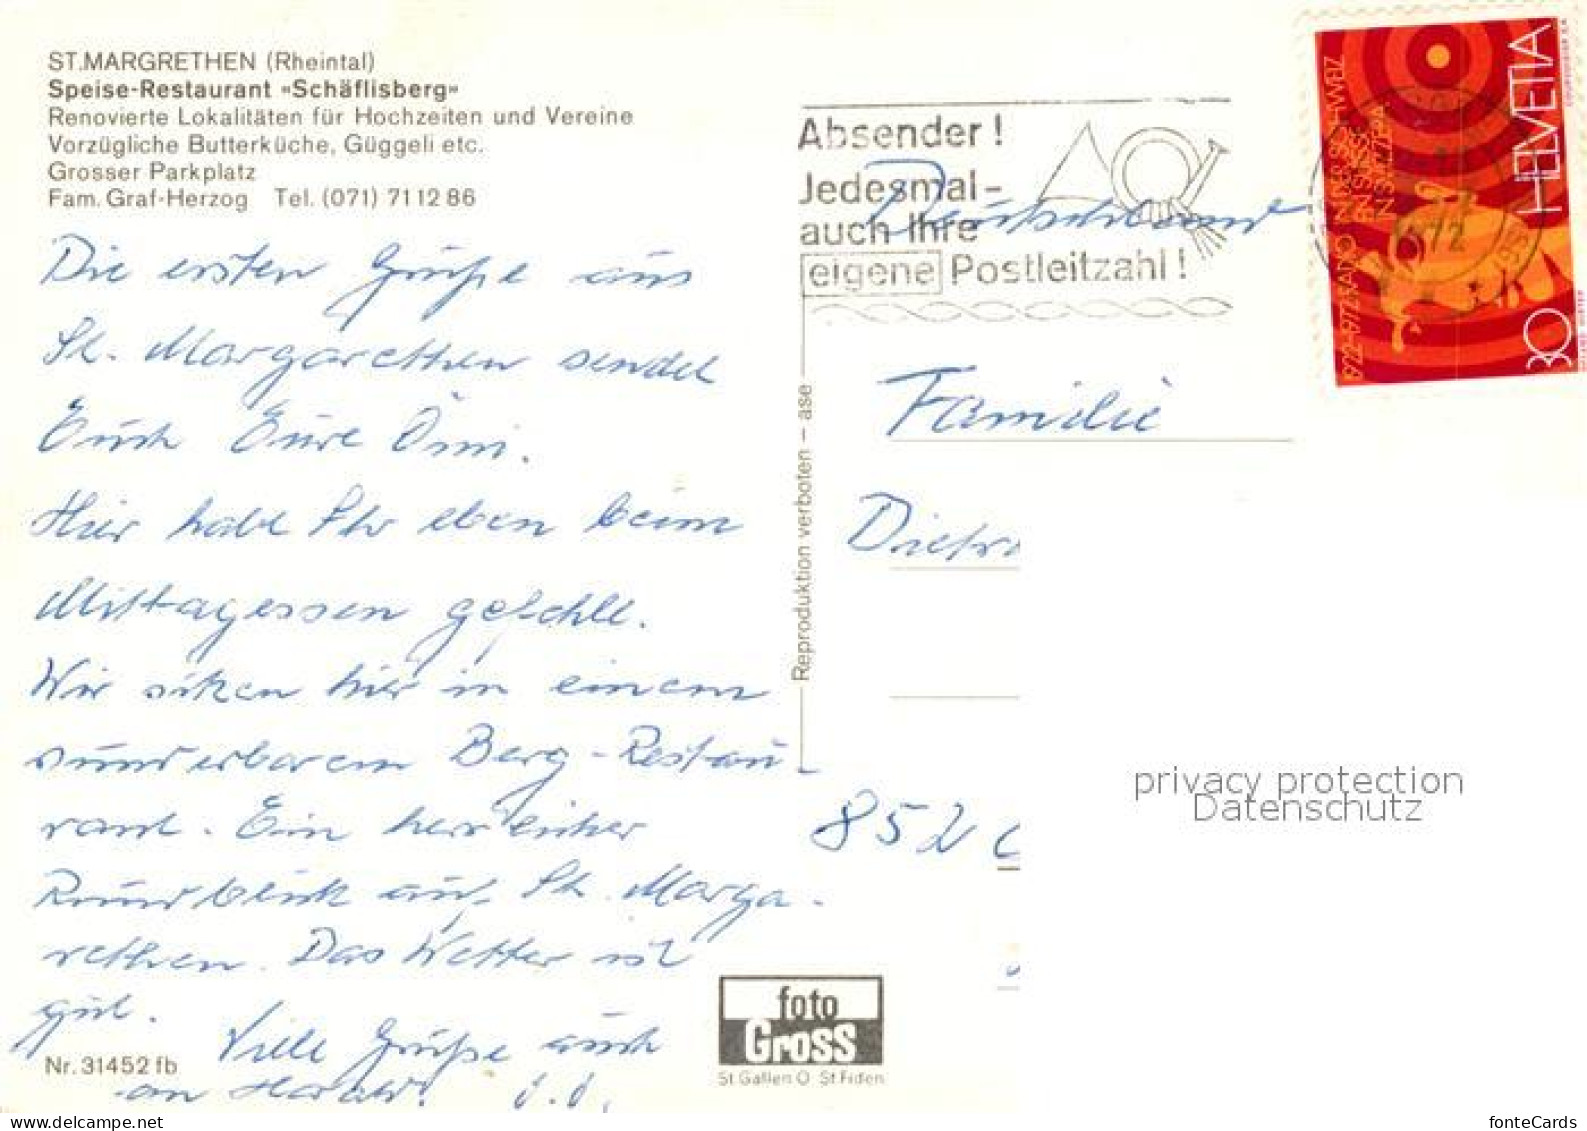 ST.MARGRETHEN (Rheintal)
Speise-Restaurant «Schäflisberg»
Renovierte Lokalitäten für Hochzeiten und Vereine
Vorzügliche Butterküche, Güggeli etc.
Grosser Parkplatz
Fam. Graf-Herzog Tel. (071) 71 12 86
Die ersten Grüße aus
St. Margarethen sendet
Euch Eure Omi.
Hier habt Ihr eben beim
Mittagessen gefehlt.
Wir sitzen hier in einem
wunderbaren Berg-Restau-
rant. Ein herrlicher
Rundblick auf St. Marga-
rethen. Das Wetter ist
gut.
Viele Grüße auch
an Harald!
Nr. 31452 fb
foto
Gross
St Gallen O St Fiden
Reproduktion verboten – ase
Absender!
Jedesmal-
auch Ihre
eigene Postleitzahl!
Deutschland
HELVETIA
30
1922-1972 RADIO
1972
Familie
Dietri
852
privacy protection
Datenschutz
www.delcampe.net
fonteCards